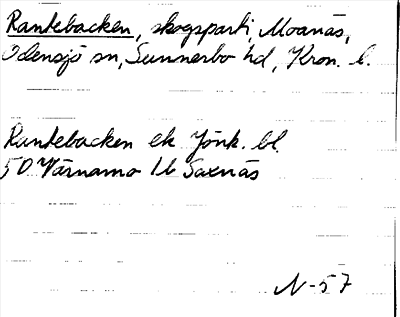 Rantebacken, skogsparti, Moanäs,
Odensjö sn, Sunnerbo hd, Kron. l.
Rantebacken ek Jönk. bl.
50 Värnamo 1b Saxnäs
N-57